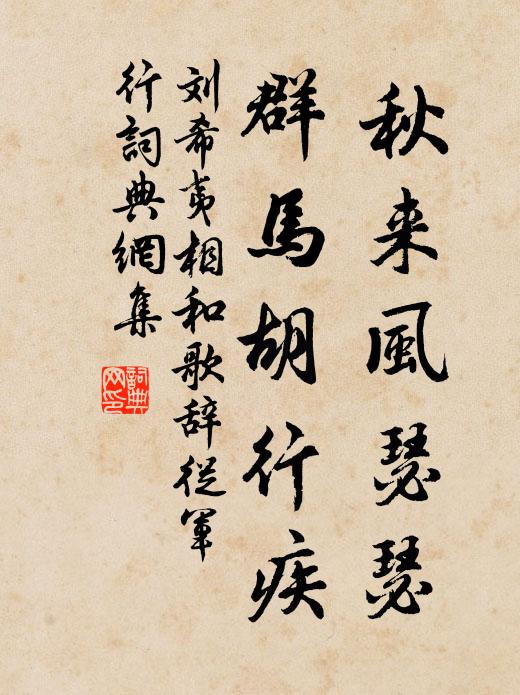 秋来風瑟瑟
群馬胡行疾
刘希夷相和歌辞從軍
行詞典網集
詞典
网印